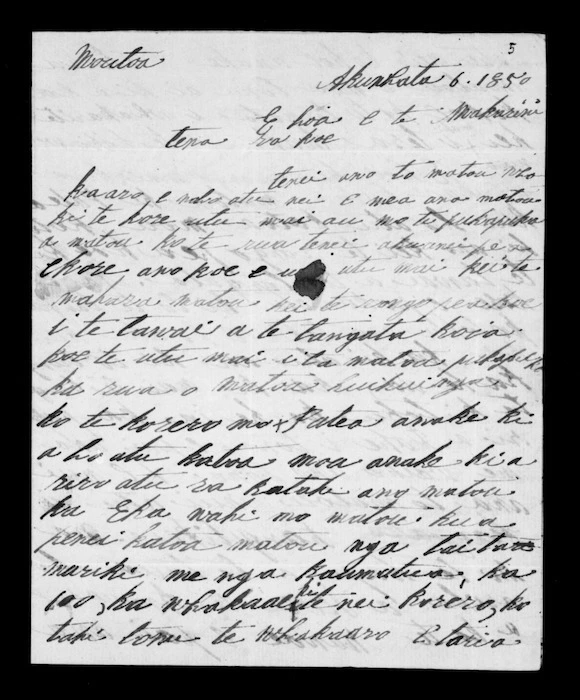 5
Moutoa
Akuhata 6. 1850
E hoa e te Makarini
tena Ra koe
tenei ano to matou
kaaro, e noho atu nei E mea ana matou
ki te kore utu mai au mo te pukapuka
a matou ko te rua tenei akuanei pea
ekore ano koe e utu mai kei te
mahara matou kei te rongo pea koe
i te tawai a te tangata koia
koe te utu mai i ta matou pukapuka
ka rua o matou
ko te korero mo Patea anake ki
a ho atu katoa moa anake kia
riro atu ra katahi ano matou
ka wahi mo matou kua
penei katoa matou nga taitama
mariki me nga kaumatua, ka
100, ka whakaae ki te nei korero, ko
tahi tonu te whakaaro E taria